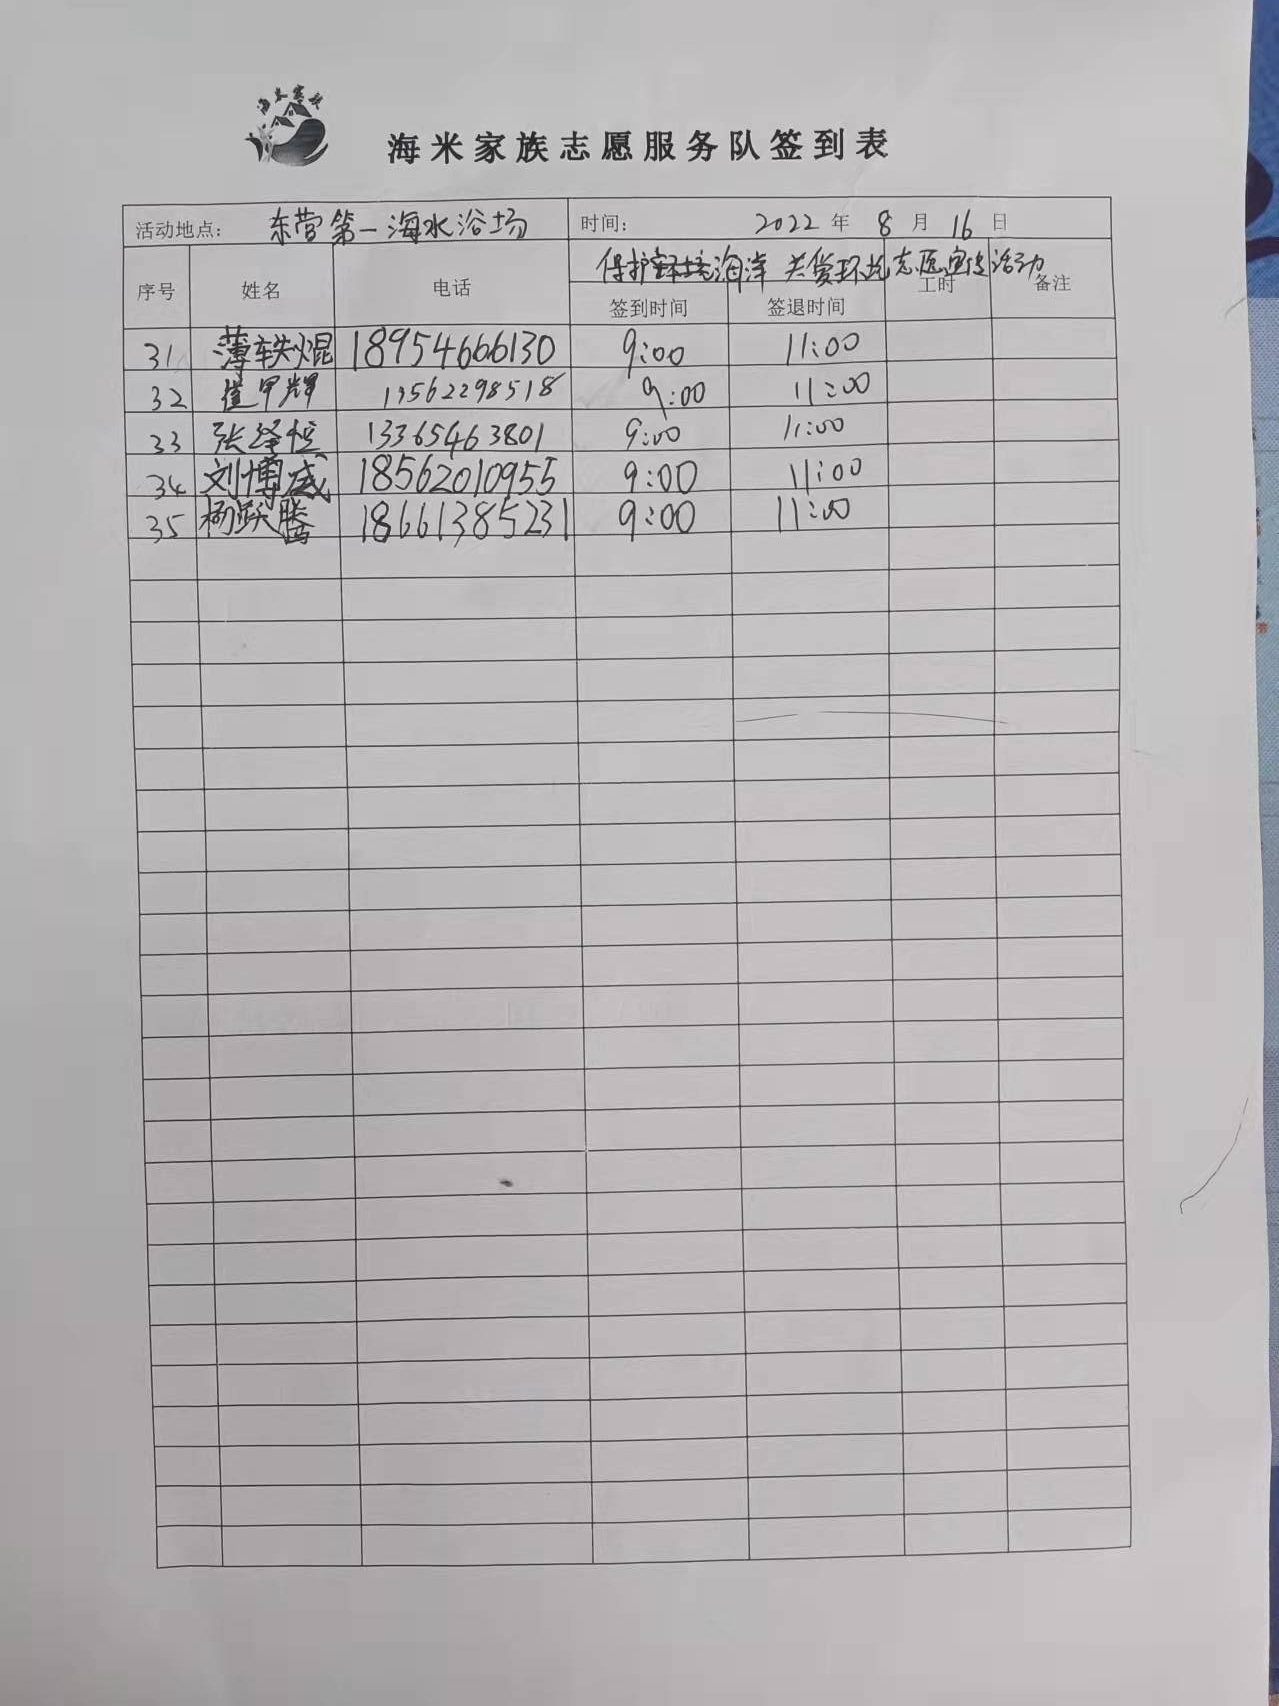 海米家族
海米家族志愿服务队签到表
活动地点: 东营第一海水浴场 时间: 2022 年 8 月 16 日
保护海洋 关爱环境志愿宣传活动
序号 姓名 电话 签到时间 签退时间 工时 备注
31 薄轶焜 18954666130 9:00 11:00
32 崔甲辉 13562298518 9:00 11:00
33 张泽恒 13365463801 9:00 11:00
34 刘博威 18562010955 9:00 11:00
35 杨跃腾 18661385231 9:00 11:00